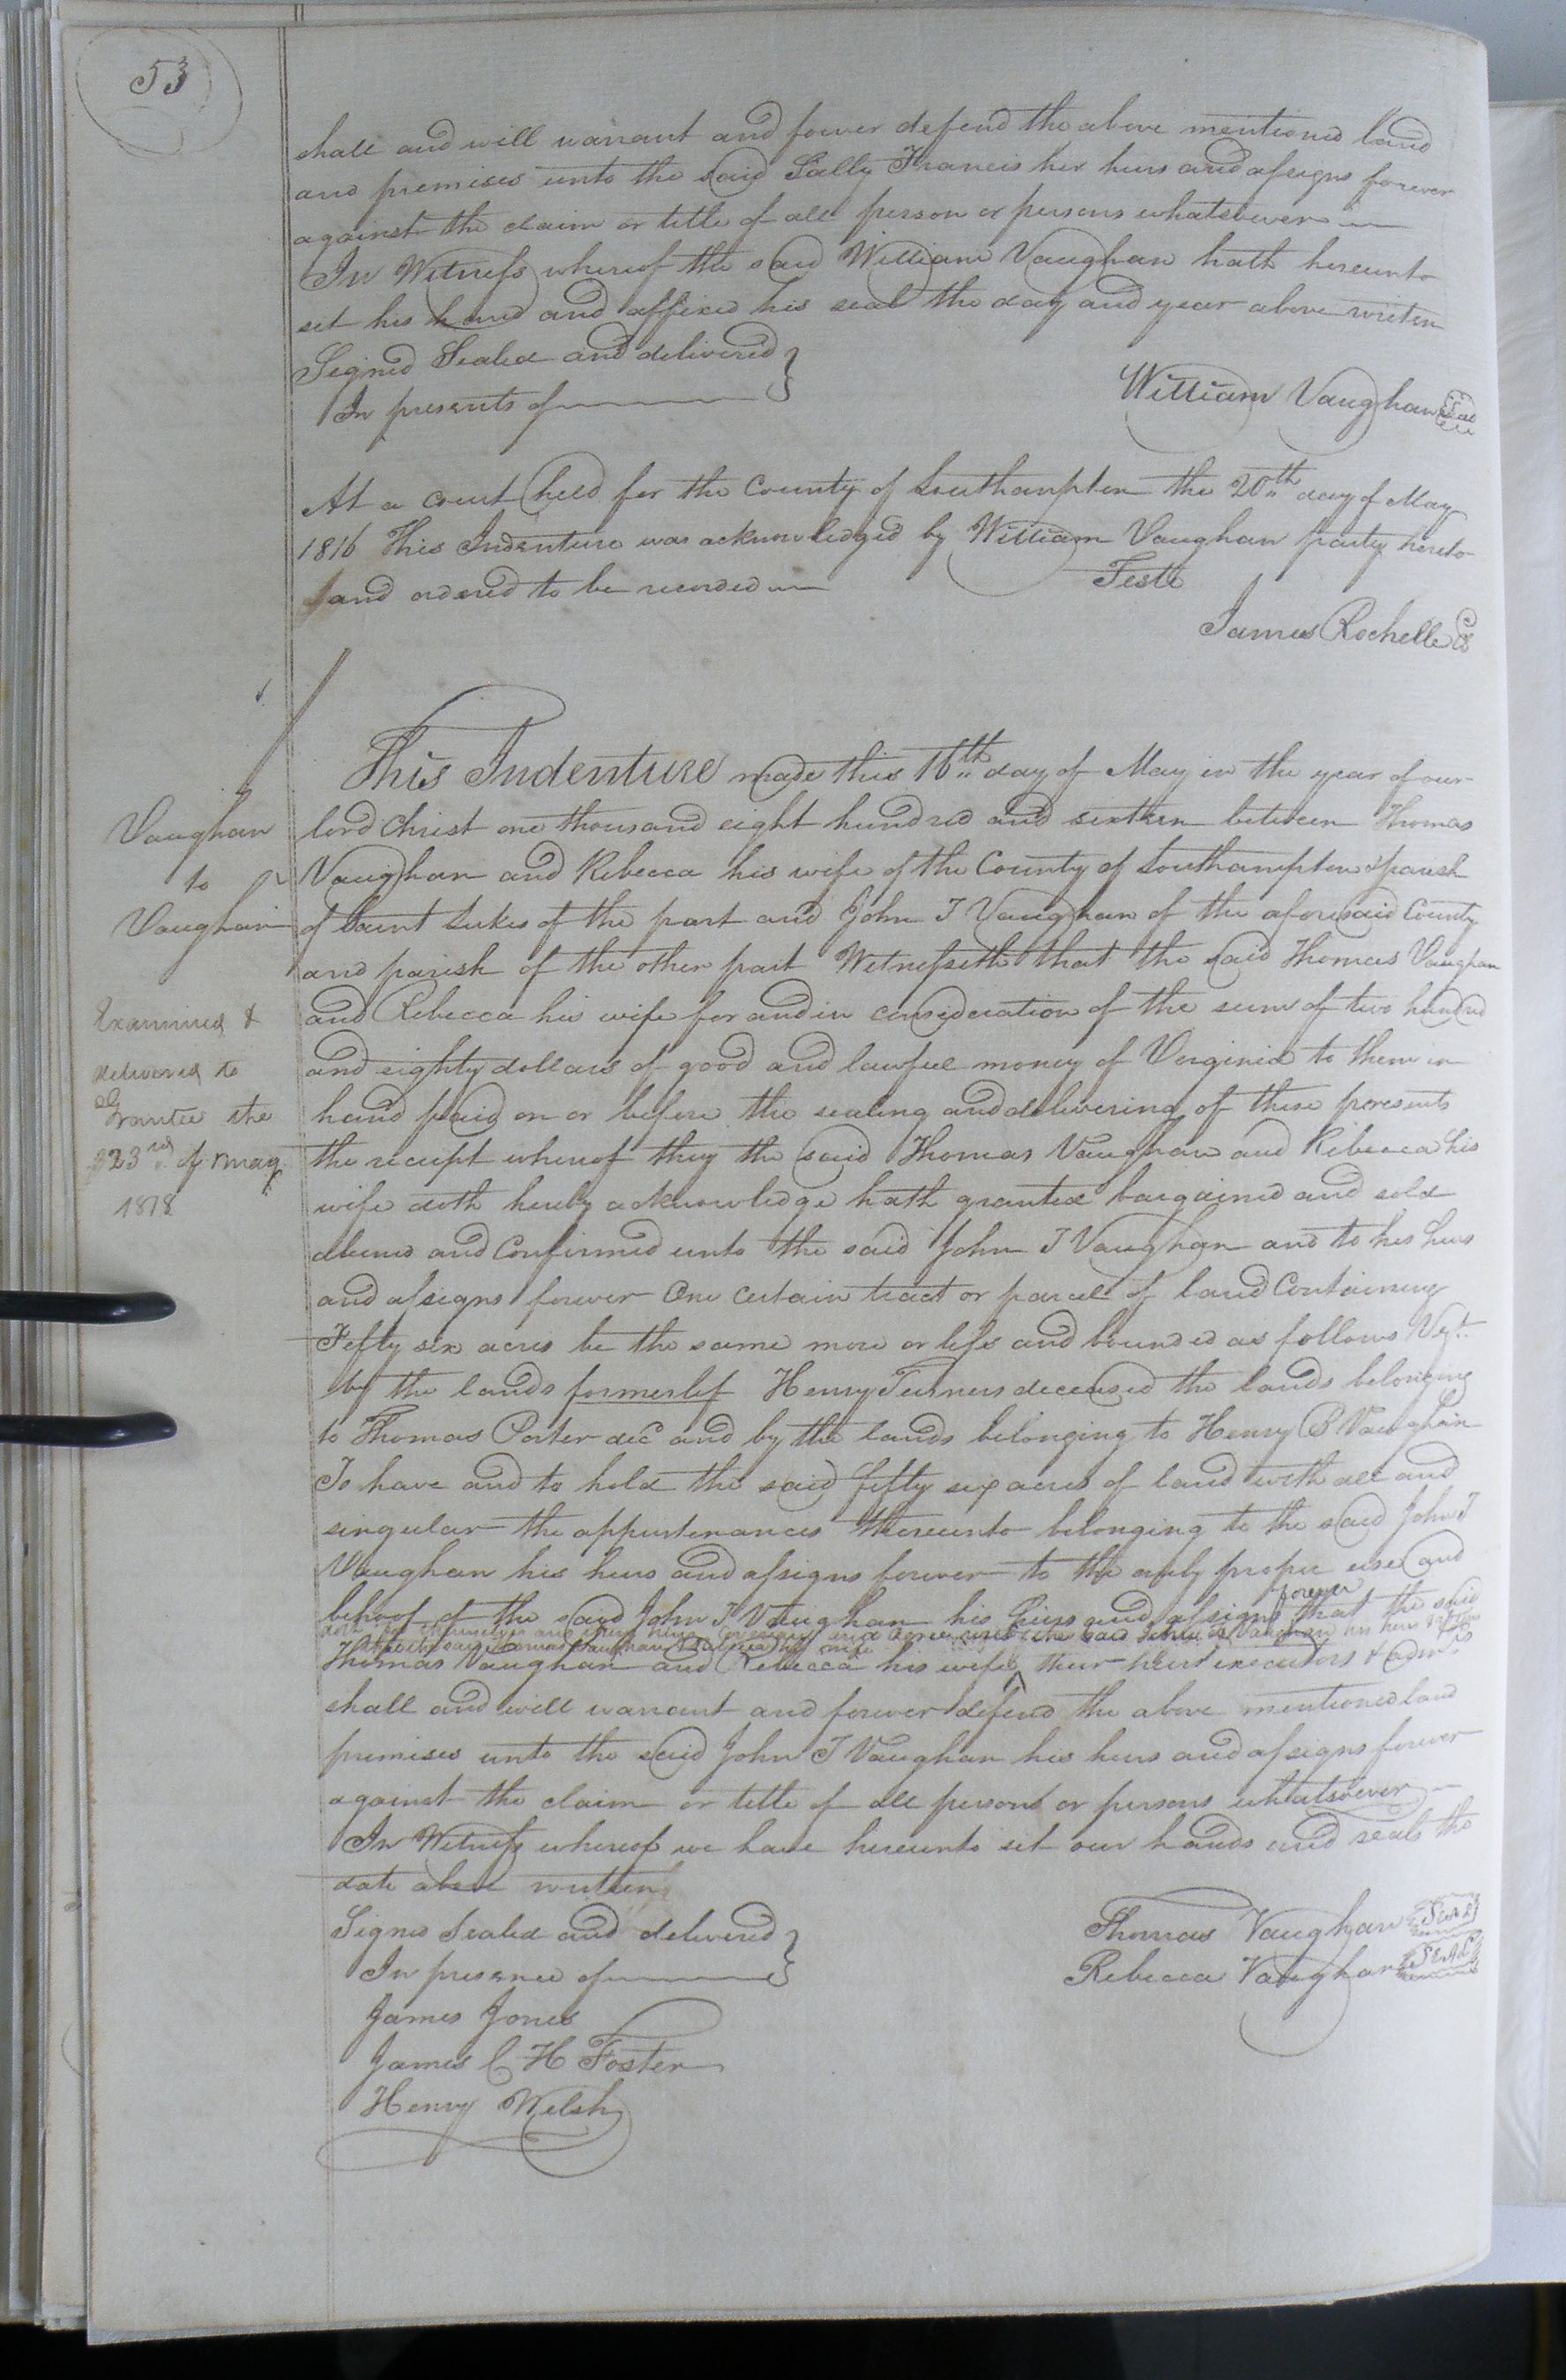 53
shall and will warrant and forever defend the above mentioned land
and premises unto the said Sally Francis her heirs and assigns forever
against the claim or title of all person or persons whatsoever
In Witness whereof the said William Vaughan hath hereunto
set his hand and affixed his seal the day and year above writen
Signed Sealed and delivered
In presents of
William Vaughan Seal
At a court held for the County of Southampton the 20th day of May
1816 This Indenture was acknowledged by William Vaughan party hereto
and ordered to be recorded
Teste
James Rochelle
Vaughan
to
Vaughan
Examined &
delivered to
Grantee the
23rd of May
1818
This Indenture made this 16th day of May in the year of our
lord Christ one thousand eight hundred and sixteen between Thomas
Vaughan and Rebecca his wife of the County of Southampton & parish
of Saint Lukes of the part and John T Vaughan of the aforesaid County
and parish of the other part Witnesseth that the said Thomas Vaughan
and Rebecca his wife for and in consideration of the sum of two hundred
and eighty dollars of good and lawful money of Virginia to them in
hand paid on or before the sealing and delivering of these presents
the receipt whereof they the said Thomas Vaughan and Rebecca his
wife doth hereby acknowledge hath granted bargained and sold
aliened and Confirmed unto the said John T Vaughan and to his heirs
and assigns forever One Certain tract or parcel of land Containing
Fifty six acres be the same more or less and bounded as follows Vizt.
by the lands formerly Henry Turners deceased the lands belonging
to Thomas Porter decd and by the lands belonging to Henry B Vaughan
To have and to hold the said fifty six acres of land with all and
singular the appurtenances thereunto belonging to the said John T
Vaughan his heirs and assigns forever to the only proper use and
behoof of the said John T Vaughan his heirs and assigns forever that the said
doth for themselves and their heirs Covenant and agree with the said John T Vaughan his heirs &
the said Thomas Vaughan & Rebecca his wife
Thomas Vaughan and Rebecca his wife their heirs executors & admrs
shall and will warrant and forever defend the above mentioned land
premises unto the said John T Vaughan his heirs and assigns forever
against the claim or title of all persons or persons whatsoever
In Witness whereof we have hereunto set our hands and seals the
date above written
Signed Sealed and delivered
In presence of
Thomas Vaughan Seal
Rebecca Vaughan SEAL
James Jones
James C H Foster
Henry Welsh